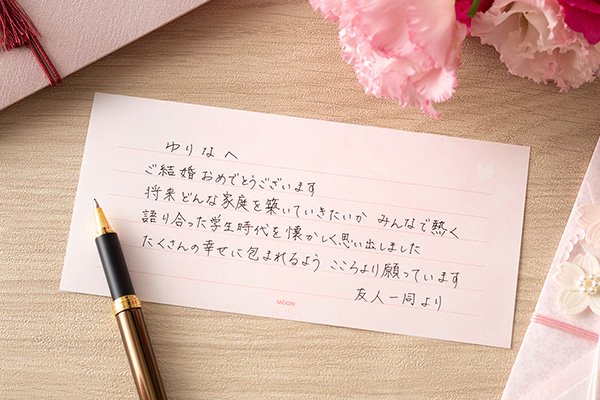 ゆりなへ
ご結婚おめでとうございます
将来どんな家庭を築いていきたいか みんなで熱く
語り合った学生時代を懐かしく思い出しました
たくさんの幸せに包まれるよう こころより願っています
友人一同より
MIDORI